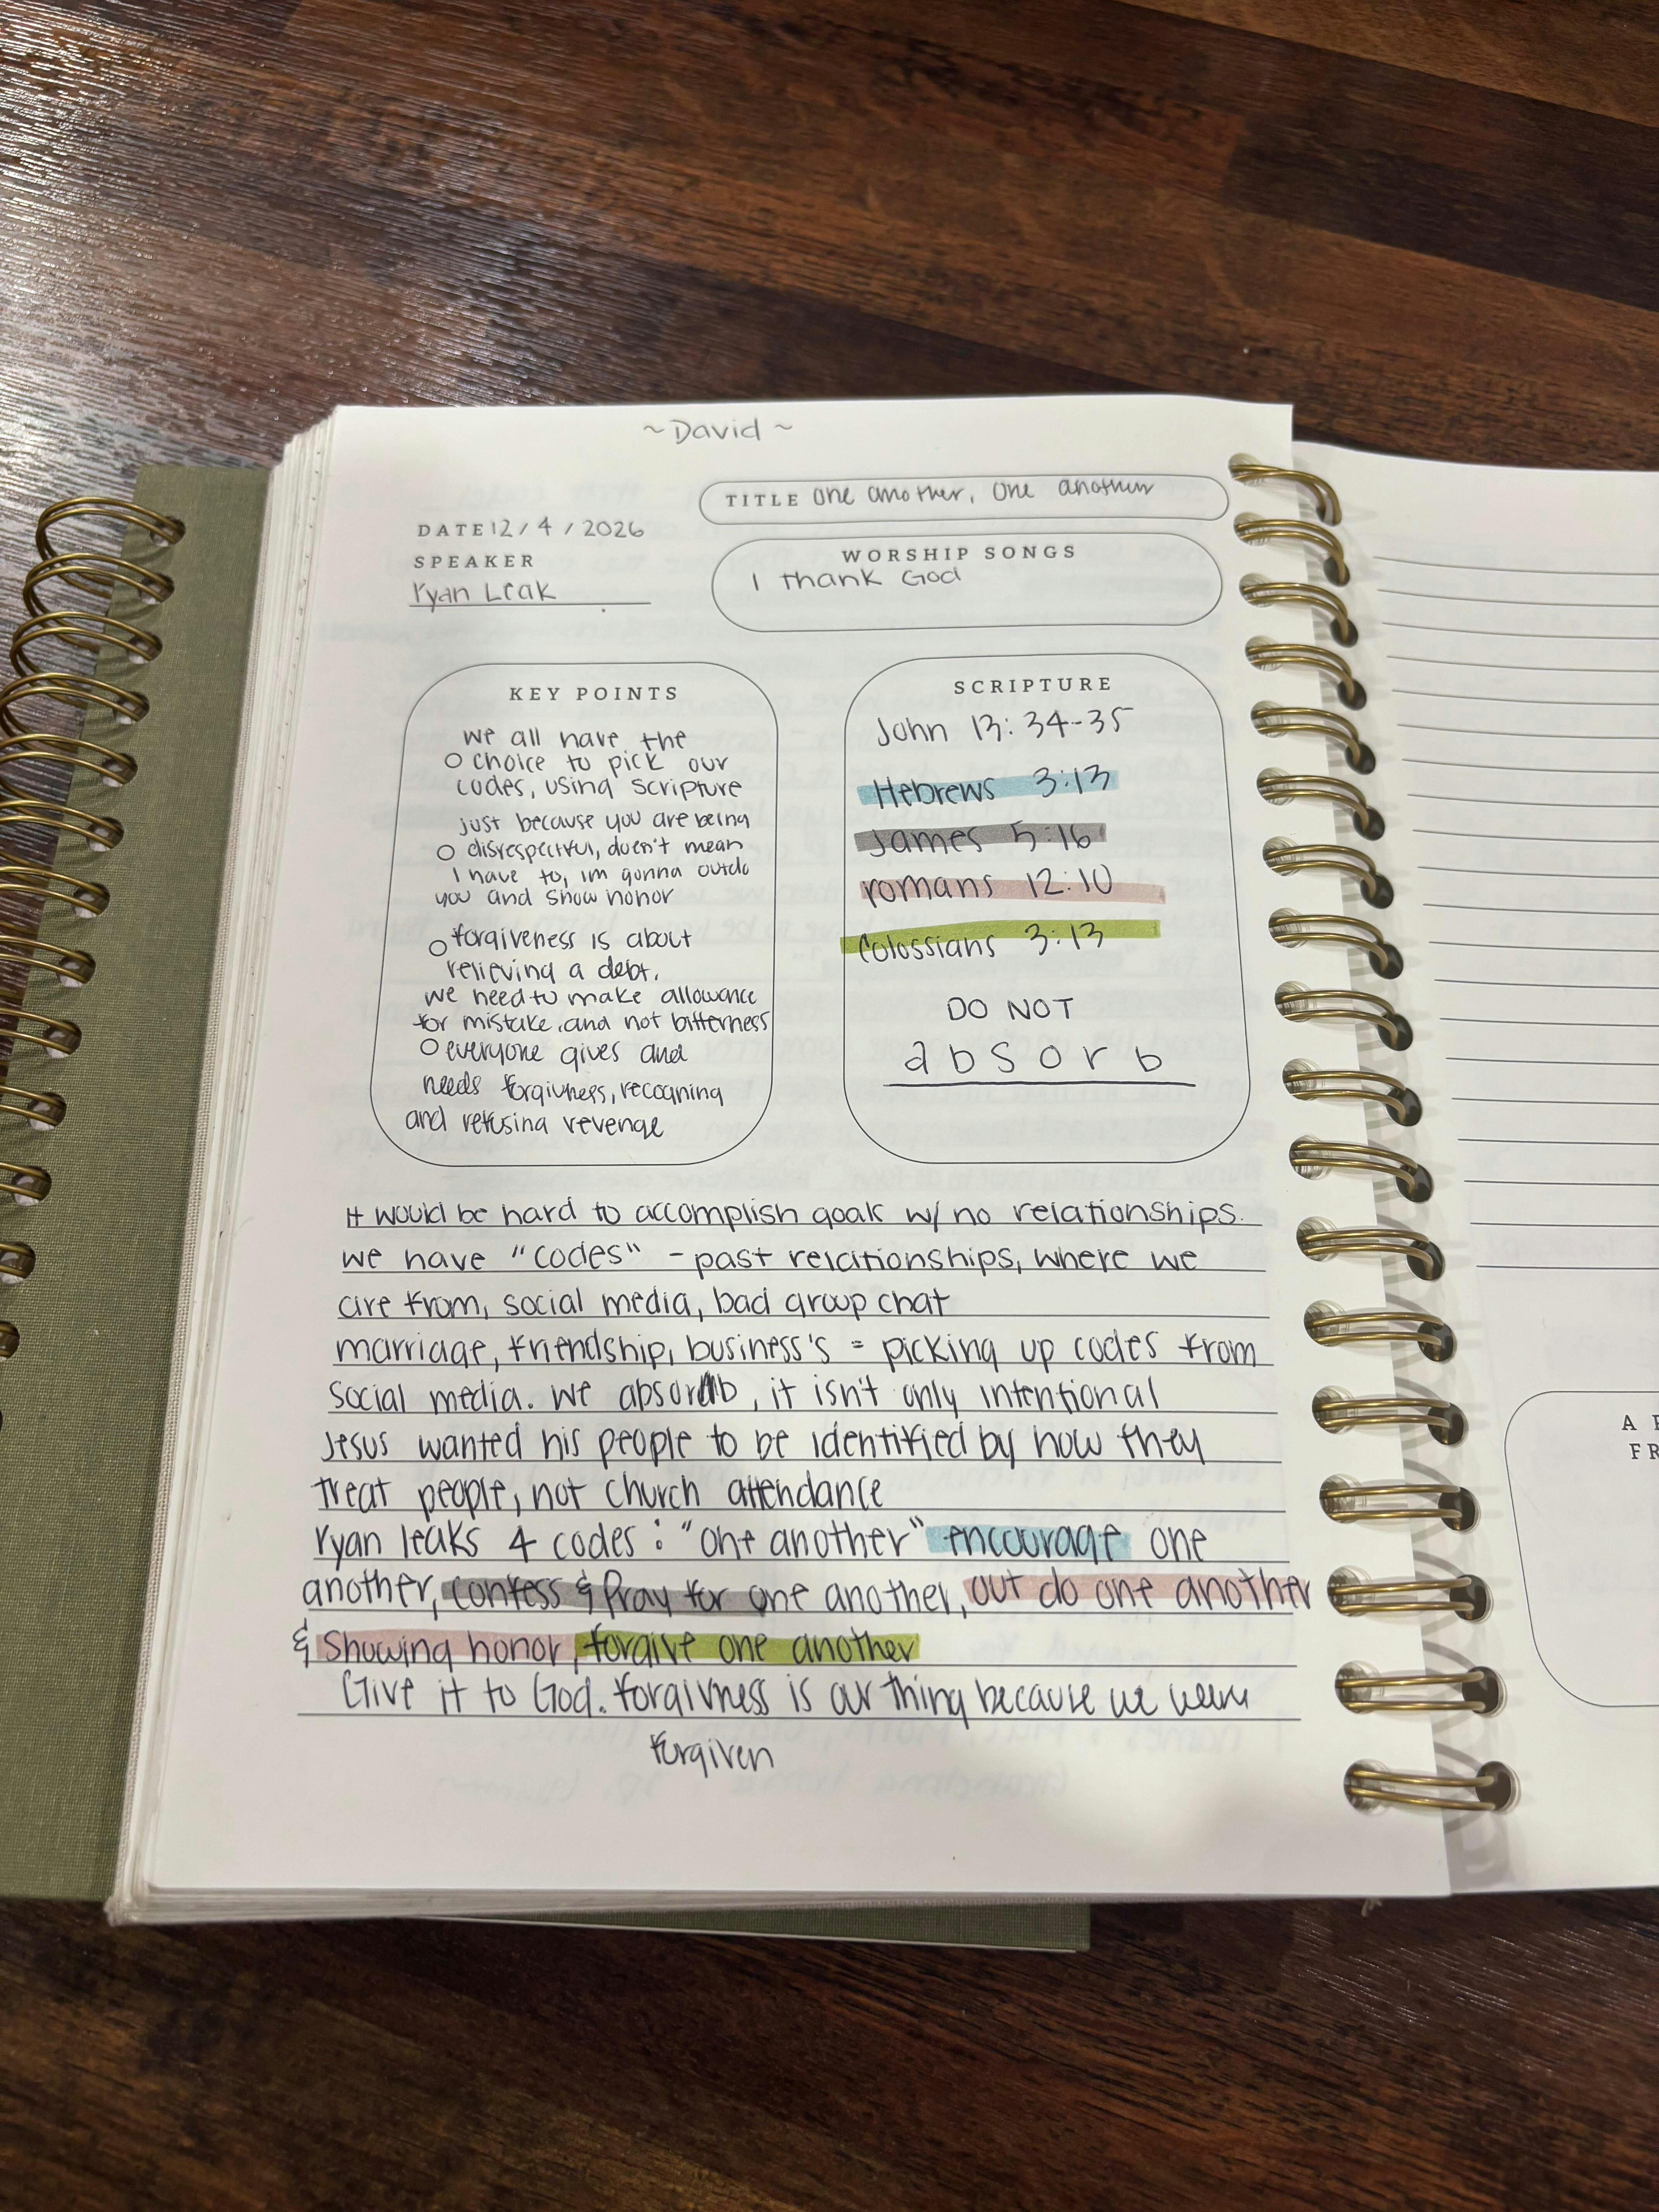 ~ David ~
TITLE one another, one another
DATE 12 / 4 / 2026
SPEAKER
ryan Leak
WORSHIP SONGS
I thank God
KEY POINTS
we all have the
choice to pick our
codes, using scripture
just because you are being
disrespectful, doen't mean
I have to, im gonna outdo
you and show honor
forgiveness is about
relieving a debt.
we need to make allowance
for mistake and not bitterness
everyone gives and
needs forgivness, recogning
and refusing revenge
SCRIPTURE
John 13: 34-35
Hebrews 3:13
James 5:16
romans 12:10
Colossians 3:13
DO NOT
absorb
It would be hard to accomplish goals w/ no relationships.
we have "codes" - past relationships, where we
are from, social media, bad group chat
marriage, friendship, business's = picking up codes from
social media. we absorb, it isn't only intentional
Jesus wanted his people to be identified by how they
treat people, not church attendance
ryan leaks 4 codes: "one another" encourage one
another, confess & Pray for one another, out do one another
& Showing honor, forgive one another
Give it to God. forgivness is our thing because we were
forgiven
A
FR